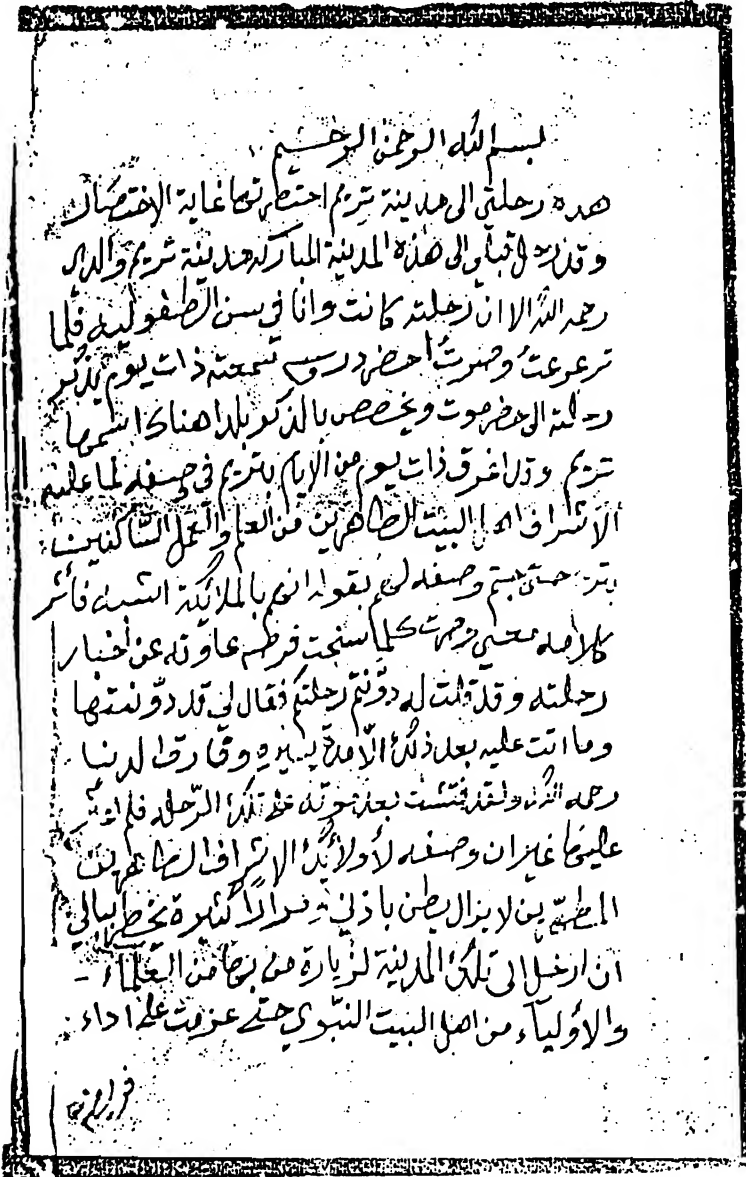 بسم الله الرحمن الرحيم
هذه رحلتي الى مدينة تريم اختصرتها غاية الاختصار
وقد رحل قبلي الى هذه المدينة المباركة مدينة تريم والدي
رحمه الله الا ان رحلته كانت وانا في سن الطفوليه فلما
ترعرعت وصرت احضر دروسه سمعته ذات يوم يذكر
رحلته الى حضرموت ويخصص بالذكر بلدا هناك اسمها
تريم وقد اغرق ذات يوم من الايام بتريم في وصفه لما عليه
الاشراف اهل البيت الطاهرين من العلم والعمل الساكنين
بتريم حتى ختم وصفه لهم بقوله انهم بالملائكة اشبه فأثر
كلامه معي وصرت كلما سنحت فرصه عاودته عن اخبار
رحلته وقد قلت له دونتم رحلتكم فقال لي قد دونتها
وما اتت عليه بعد ذلك الا مدة يسيره وفارق الدنيا
رحمه الله ولقد فتشت بعد موته على تلك الرحله فلم اعثر
عليها غير ان وصفه لأولائك الاشراف الطاهرين
المطهرين لا يزال يطن باذني ومرارا كثيرة يخطر ببالي
ان ارحل الى تلك المدينة لزيارة من بها من العلماء -
والأولياء من اهل البيت النبوي حتى عزمت على اداء